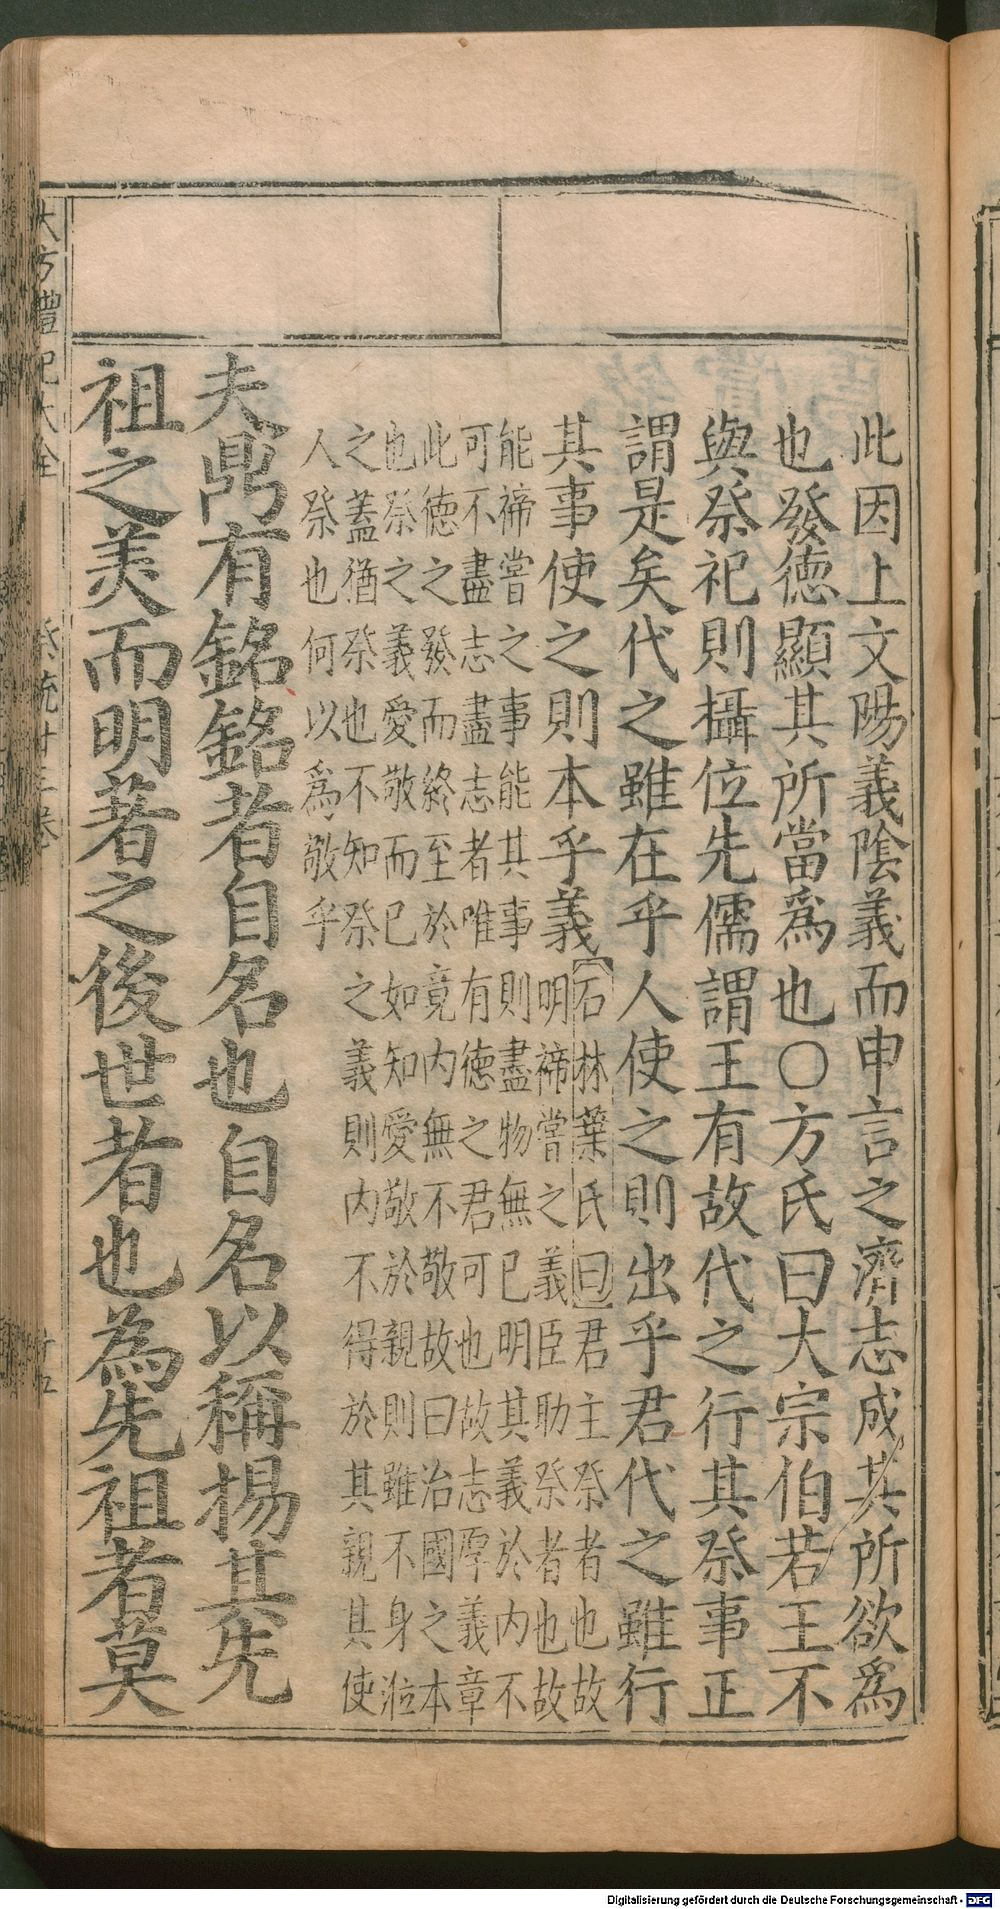 此因上文陽義陰義而申言之濟志成其所欲爲
也發德顯其所當爲也○方氏曰大宗伯若王不
與祭祀則攝位先儒謂王有故代之行其祭事正
謂是矣代之雖在乎人使之則出乎君代之雖行
其事使之則本乎義
【石林葉氏曰】君主祭者也故
明禘嘗之義臣助祭者也故
能禘嘗之事能其事則盡物無已明其義於內不
可不盡志盡志者唯有德之君可也故志厚義章
此德之發而終至於竟內無不敬故曰治國之本
也祭之義愛敬而已如知愛敬於親則雖不身涖
之蓋猶祭也不知祭之義則內不得於其親其使
人祭也何以爲敬乎
夫鼎有銘銘者自名也自名以稱揚其先
祖之美而明著之後世者也為先祖者莫
大方禮記大全 祭統廿三卷 廿五
Digitalisierung gefördert durch die Deutsche Forschungsgemeinschaft - DFG